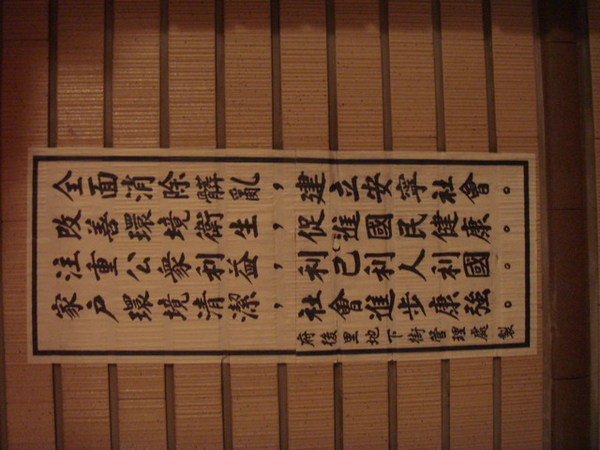 全面消除髒亂，建立安寧社會。
改善環境衛生，促進國民健康。
注重公眾利益，利己利人利國。
家戶環境清潔，社會進步康強。
府後里地下街管理處製